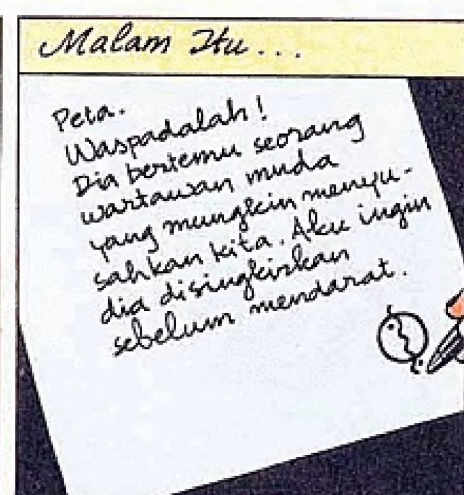 Malam Itu...
Peta.
Waspadalah!
Dia bertemu seorang
wartawan muda
yang mungkin menyu-
sahkan kita. Aku ingin
dia disingkirkan
sebelum mendarat.